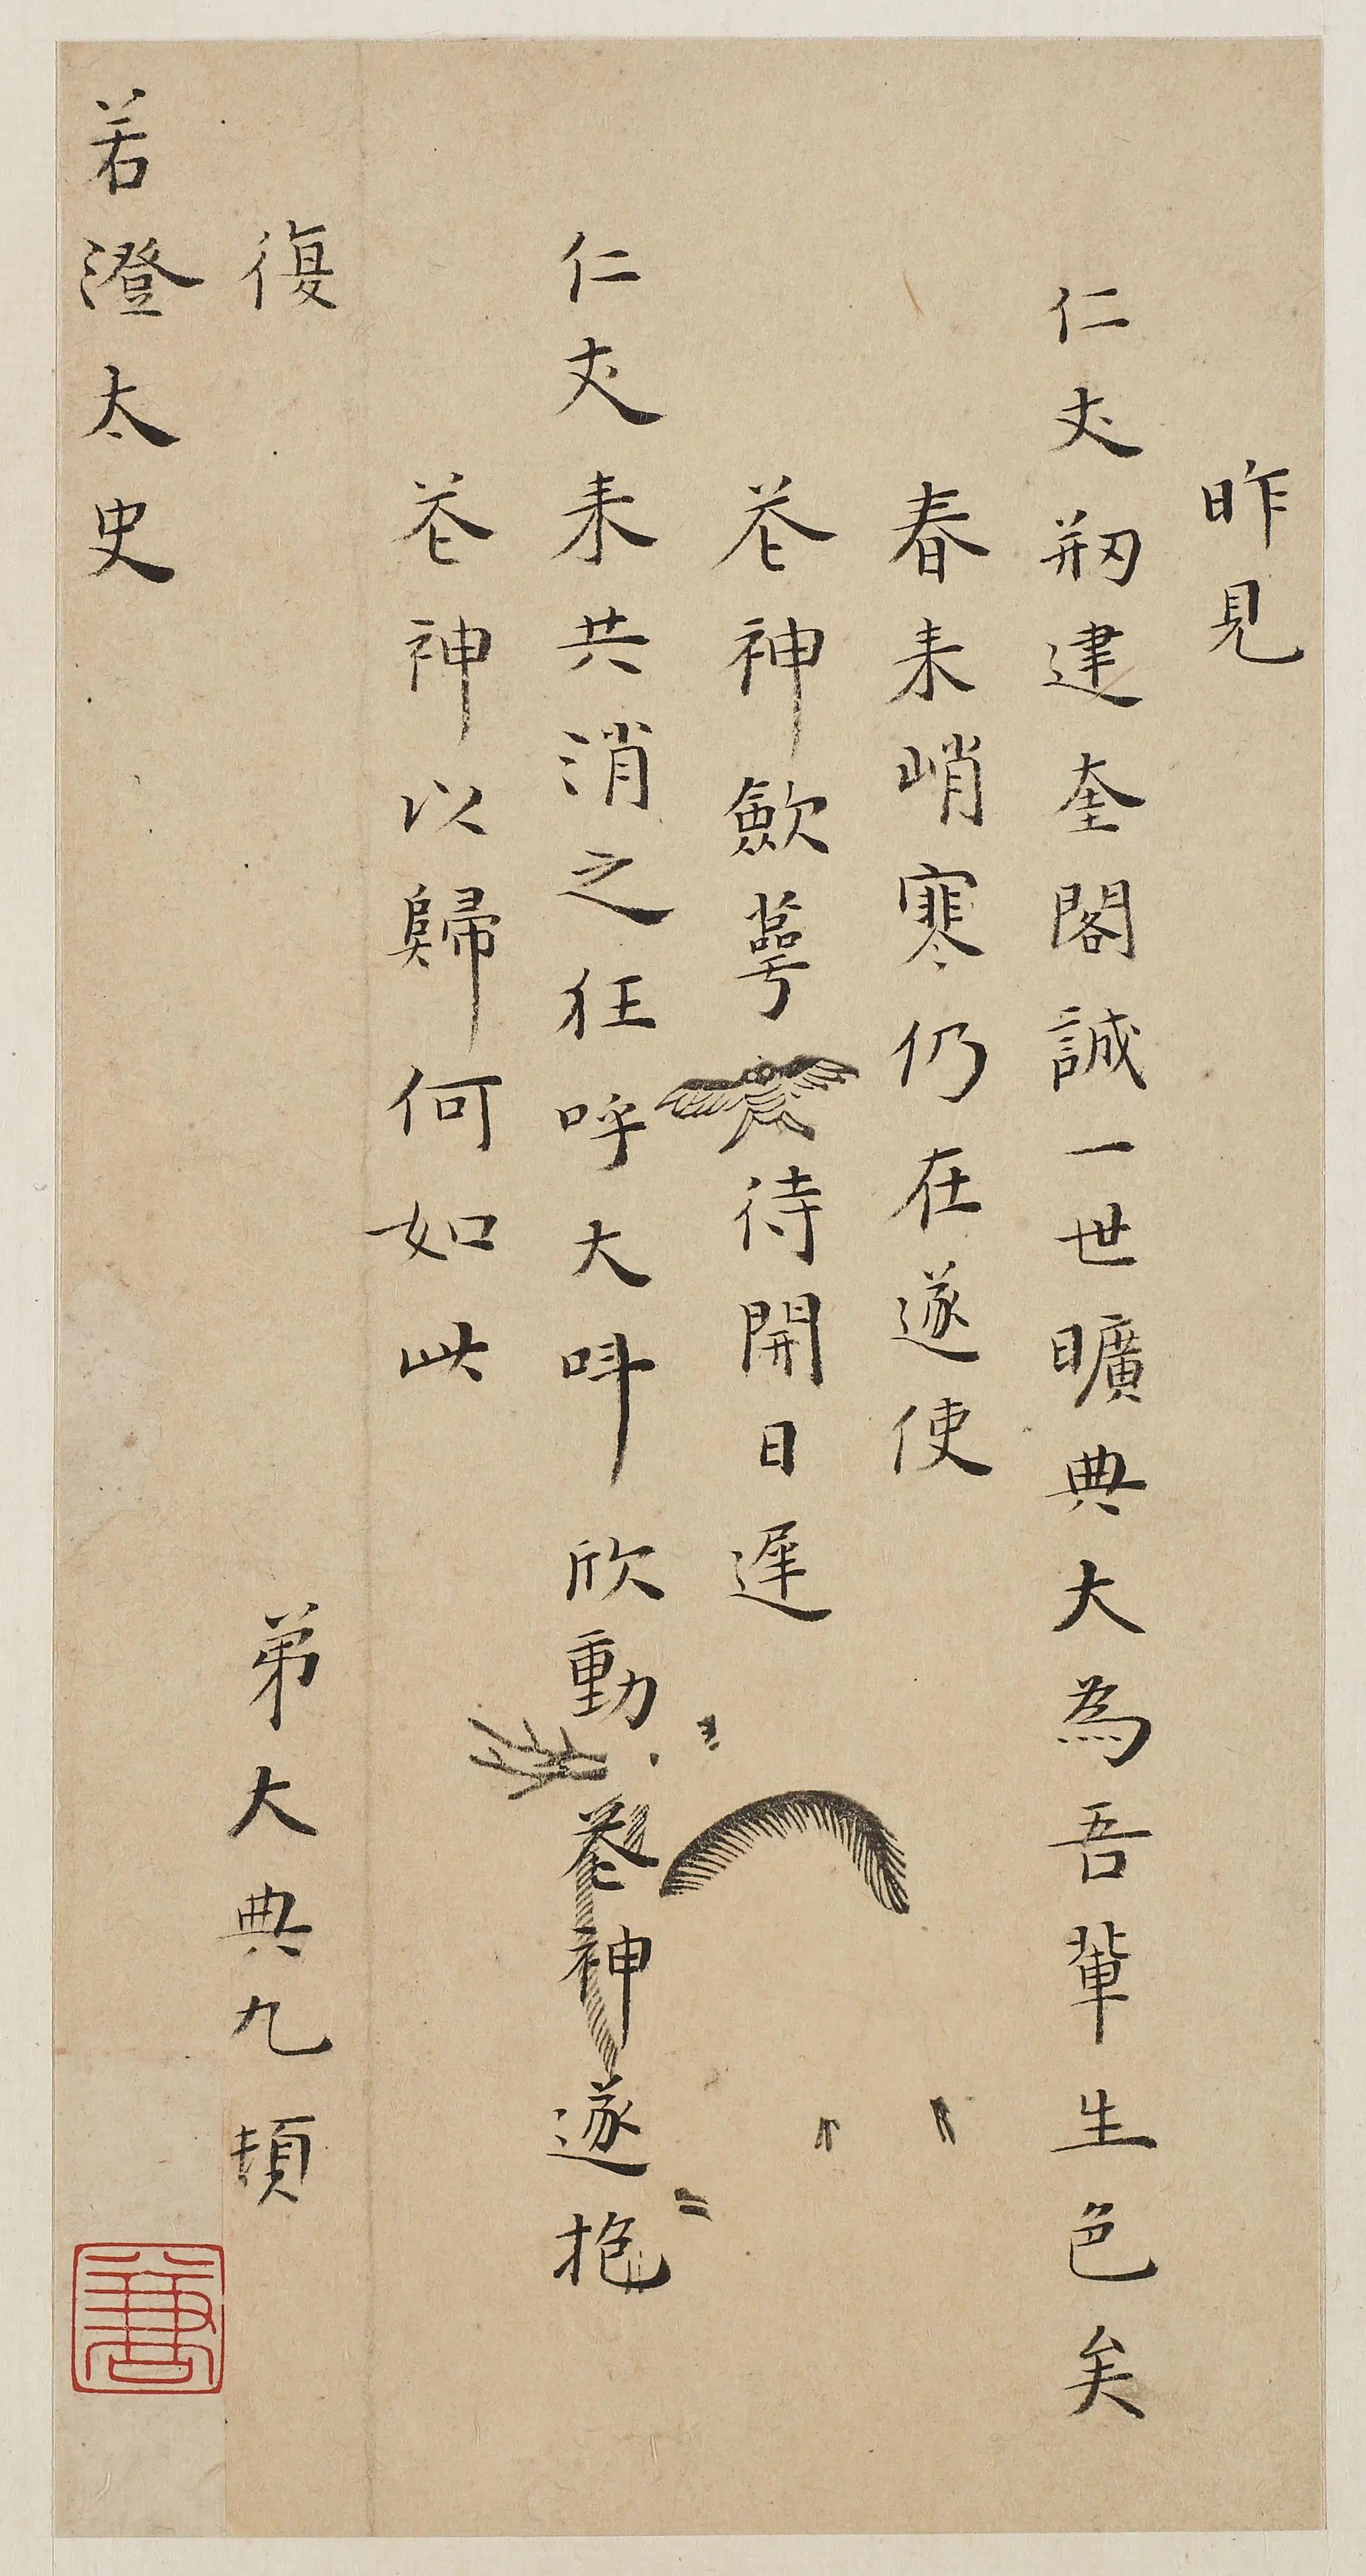 昨見
仁丈刱建奎閣誠一世曠典大為吾輩生色矣
春来峭寒仍在遂使
花神歛萼待開日遲
仁丈来共消之狂呼大呌欣動花神遂抱
花神以歸何如此
復
弟大典九頓
若澄太史